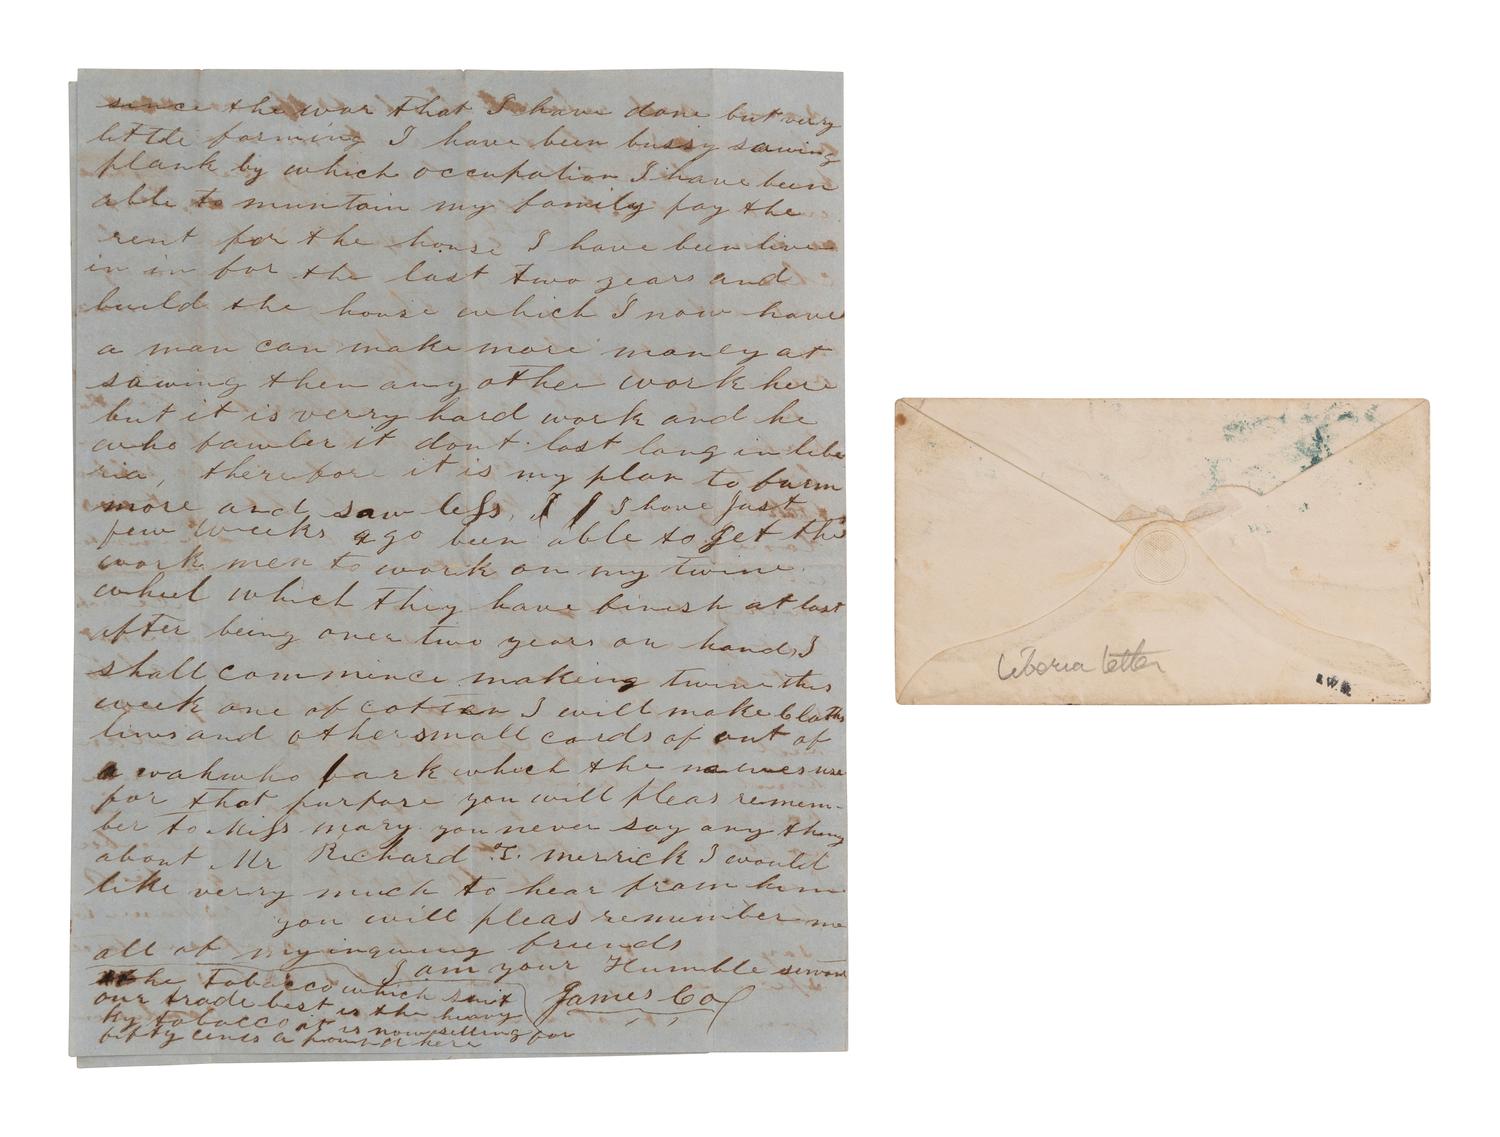 since the war that I have done but very
little farming I have been bussy sawing
plank by which occupation I have been
able to muntain my family pay the
rent for the house I have been live
in in for the last two years and
build the house which I now have
a man can make more money at
sawing then any other work here
but it is verry hard work and he
who fawler it dont last long in libe
ria, therefore it is my plan to farm
more and saw less, I have just
few weeks ago been able to get the
work men to work on my twine
wheel which they have finish at last
after being over two years on hand, I
shall commince making twine this
week one of cotton I will make cloths
lins and other small cords of out of
a wahwho bark which the natives use
for that purpose you will pleas remem-
ber to Miss mary you never say any thing
about Mr Richard T. merrick I would
like verry much to hear from him
you will pleas remember me
all of my inquiring friends
I am your Humble servant
James Coa
the tobacco which suit
our trade best is the heavy
Ky tobacco it is now selling for
fifty cents a pound here
Liberia letter